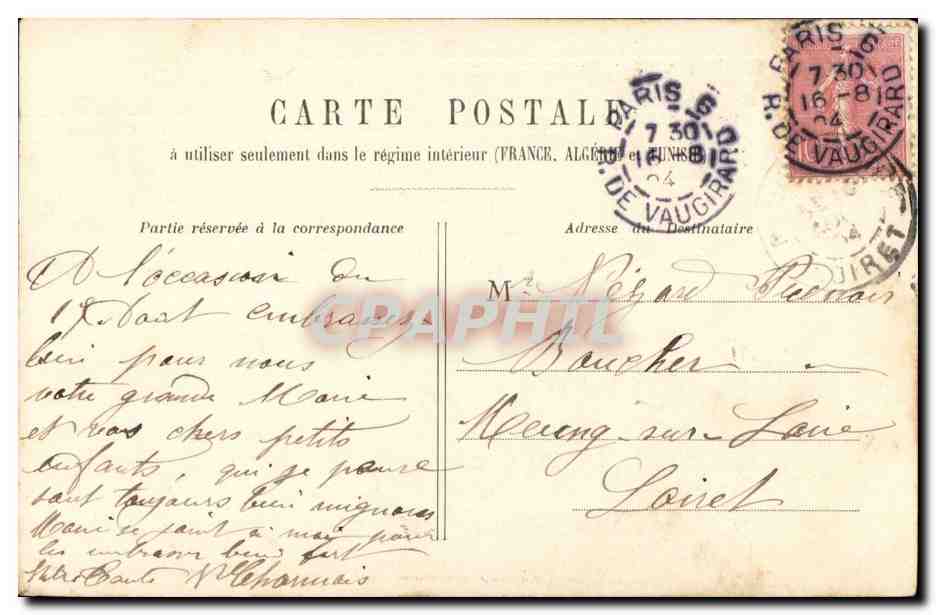 CARTE POSTALE
à utiliser seulement dans le régime intérieur (FRANCE, ALGÉRIE et TUNISIE)
PARIS 6
7 30
16 -8
04
R. DE VAUGIRARD
PARIS 6
7 30
16 -8
04
R. DE VAUGIRARD
LOIRET
Partie réservée à la correspondance
A l'occasion du
embrassez
bien pour nous
votre grande Marie
et vos chers petits
enfants, qui je pense
sont toujours bien mignons
Marie se joint à moi pour
les embrasser bien fort
Votre Tante
Adresse du Destinataire
M
Boucher
Meung-sur-Loire
Loiret
CPAPHIL